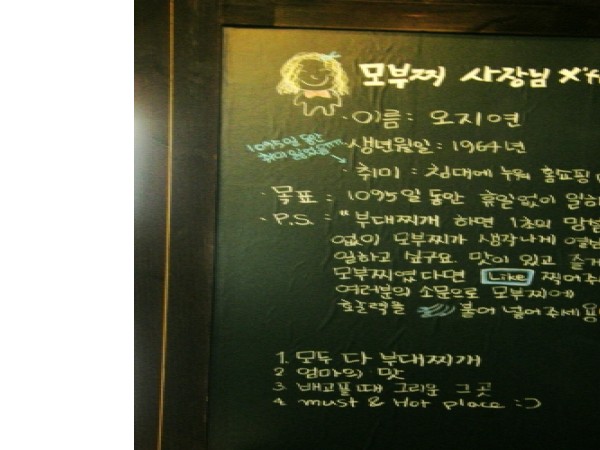 모부찌 사장님
· 이름 : 오지연
1095일 동안
· 생년월일 : 1964년
· 취미 : 침대에 누워 홈쇼핑
· 목표 : 1095일 동안 휴일없이 일하
· P.S. : "부대찌개 하면 1초의 망설
없이 모부찌가 생각나게 열심
일하고 있구요. 맛이 있고 즐거
모부찌였다면 Like 찍어주
여러분의 소문으로 모부찌에
효출력을 불어 넣어주세용
1. 모두 다 부대찌개
2. 엄마의 맛
3. 배고플때 그리운 그곳
4. must & Hot place :-)